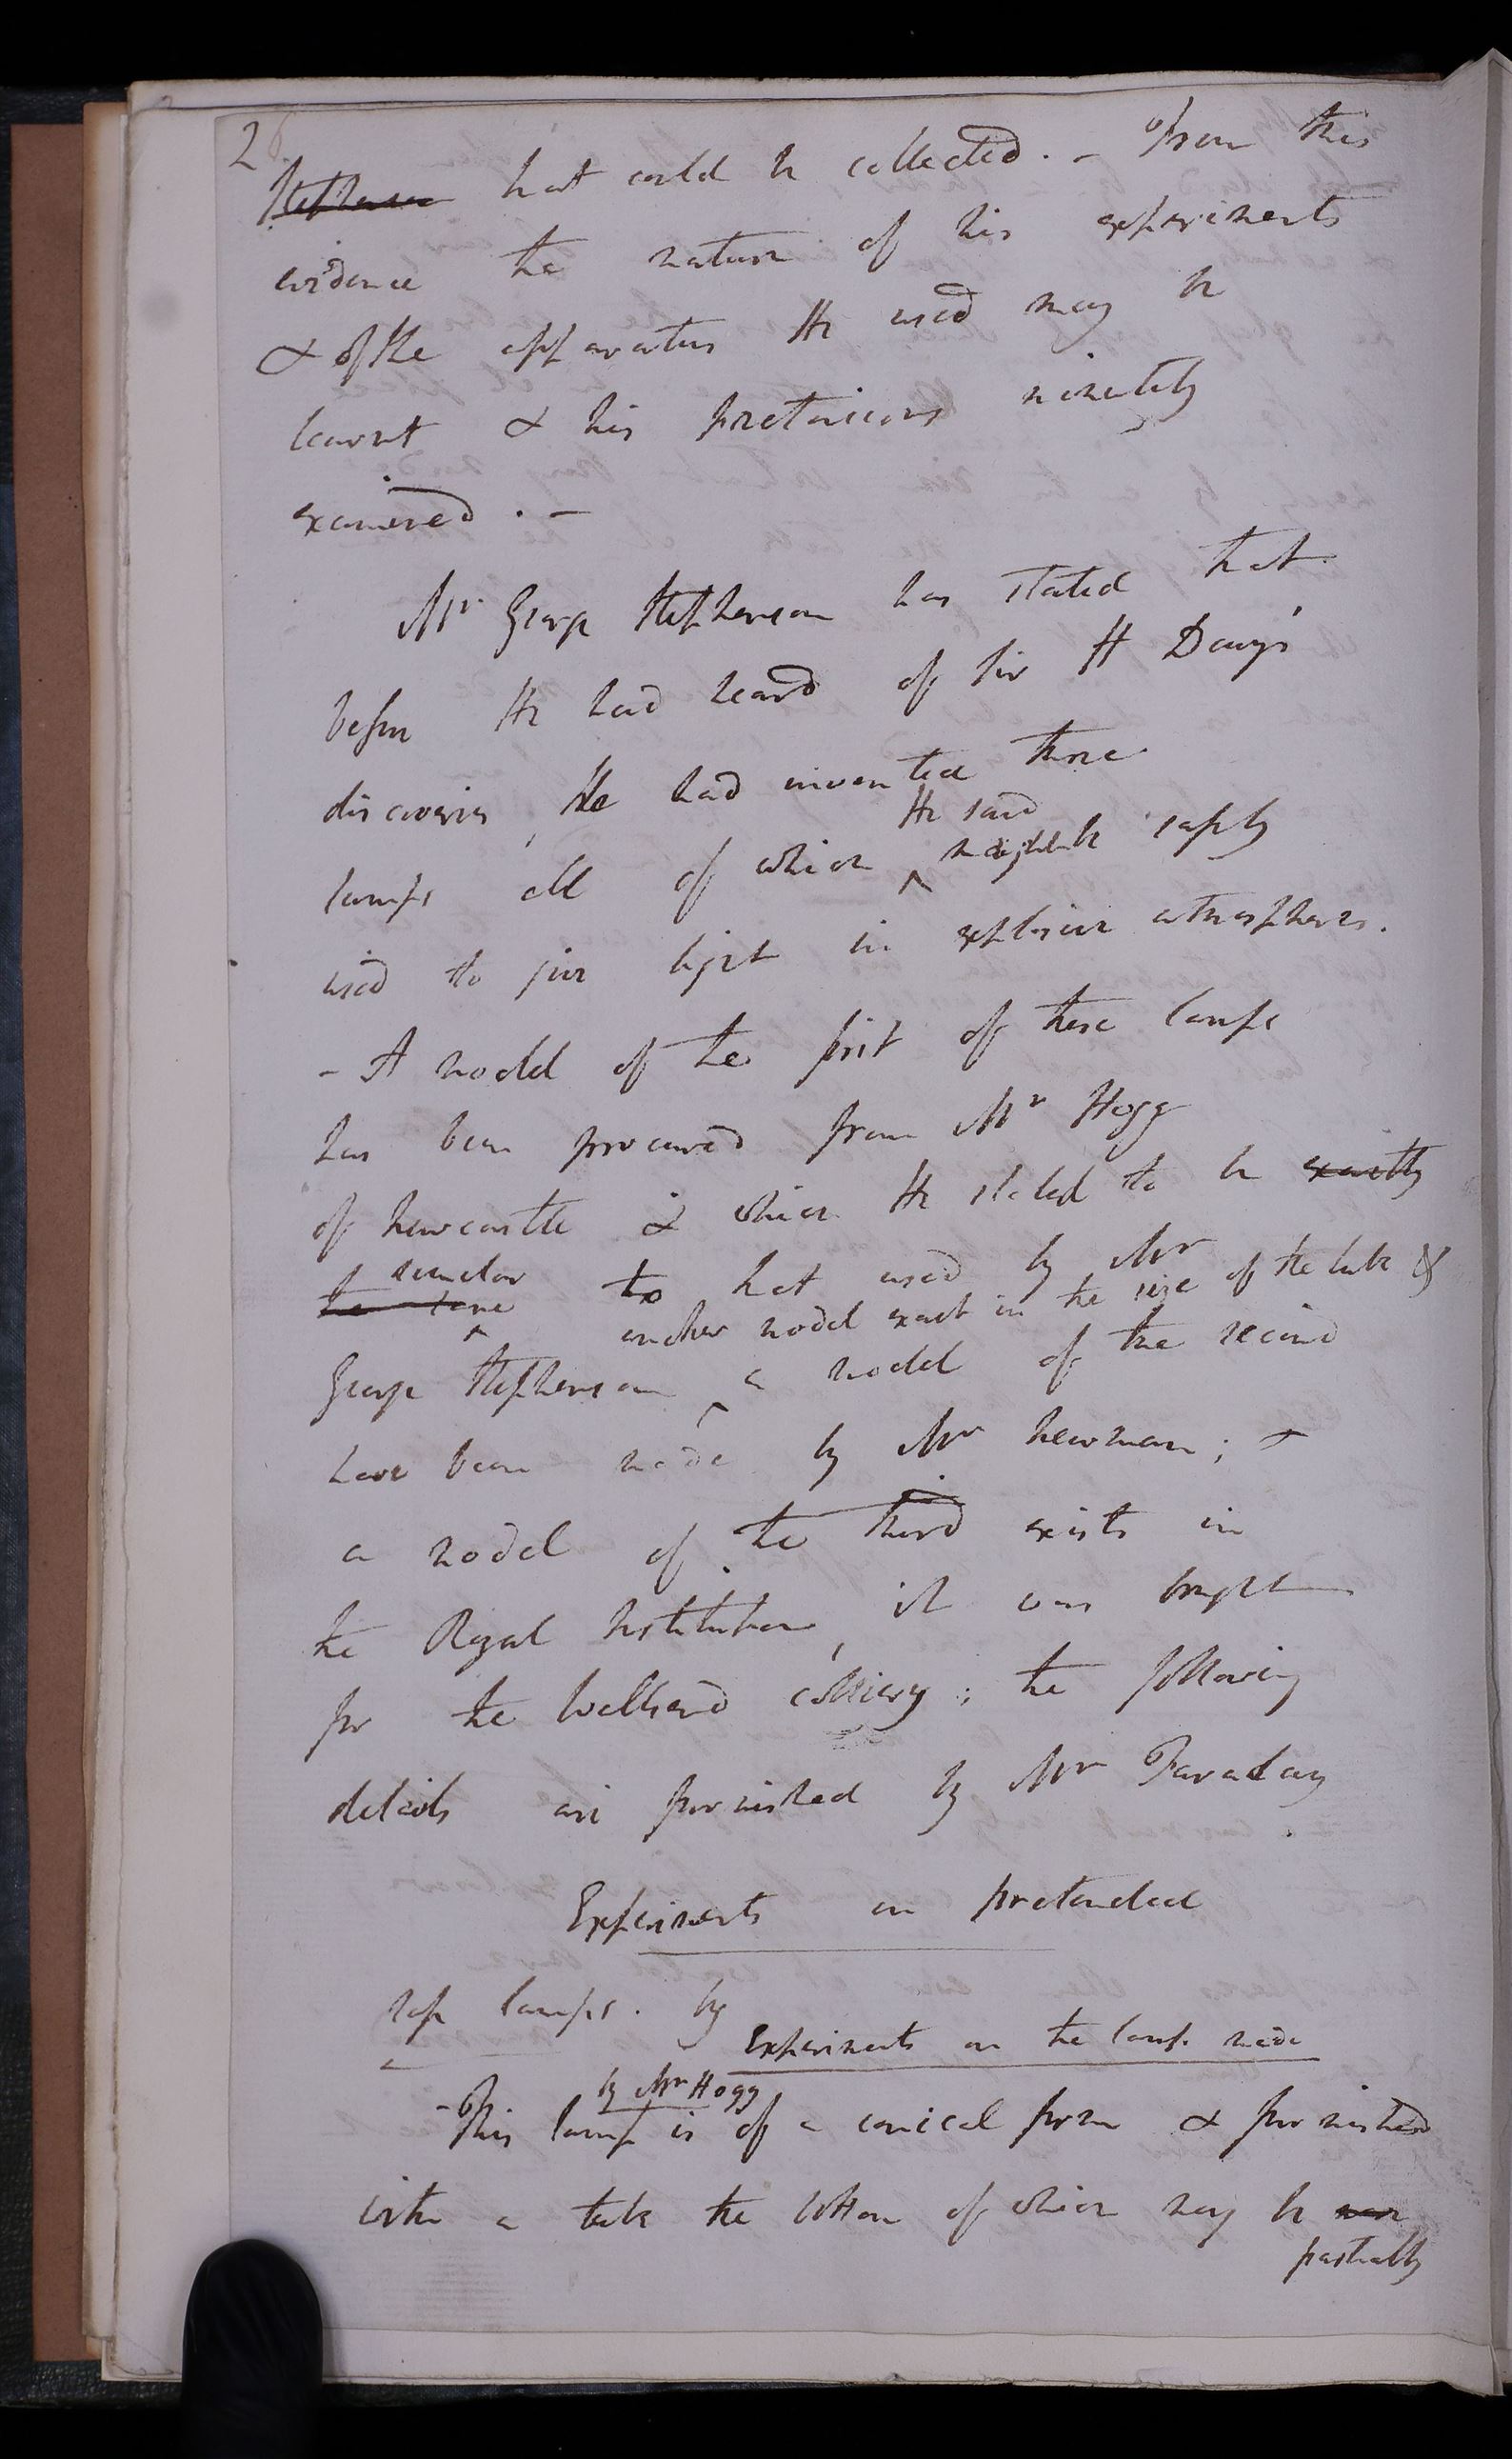 2
Stephenson that could be collected. - From this
evidence the nature of his experiments
& of the apparatus He used may be
learnt & his pretensions minutely
examined. -
Mr George Stephenson has stated that
before He had heard of Sir H Davy's
discoveries, He had invented three
He said
lamps all of which ^ might be safely
used to give light in explosive atmospheres.
- A model of the first of these lamps
has been procured from Mr Hogg
of Newcastle & which He stated to be exactly
similar
the same to that used by Mr
another model exact in the size of the tube &
George Stephenson ^ a model of the second
have been made by Mr Newman; &
a model of the third exists in
the Royal Institution, it was bought
for the Wallsend colliery; the following
details are furnished by Mr Faraday
Experiments on pretended
safe lamps. by
Experiments on the lamp made
by Mr Hogg
- This lamp is of a conical form & furnished
with a tube the bottom of which may be
partially